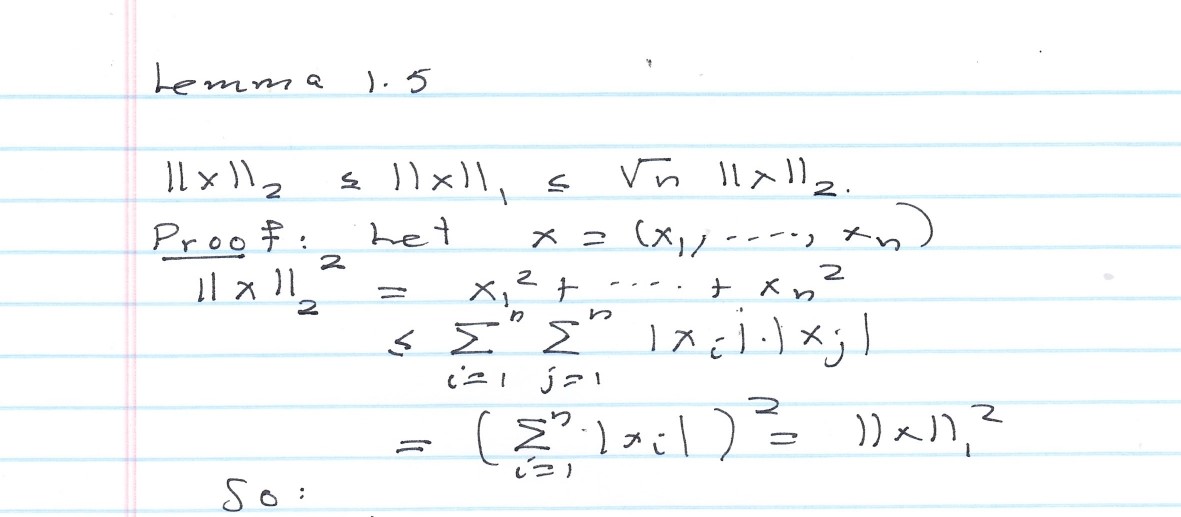 Lemma 1.5
||x||₂ ≤ ||x||₁ ≤ √n ||x||₂.
Proof: Let x = (x₁, ----, xₙ)
||x||₂² = x₁² + ---- + xₙ²
≤ Σᵢ₌₁ⁿ Σⱼ₌₁ⁿ |xᵢ|·|xⱼ|
= (Σᵢ₌₁ⁿ |xᵢ|)² = ||x||₁²
So: